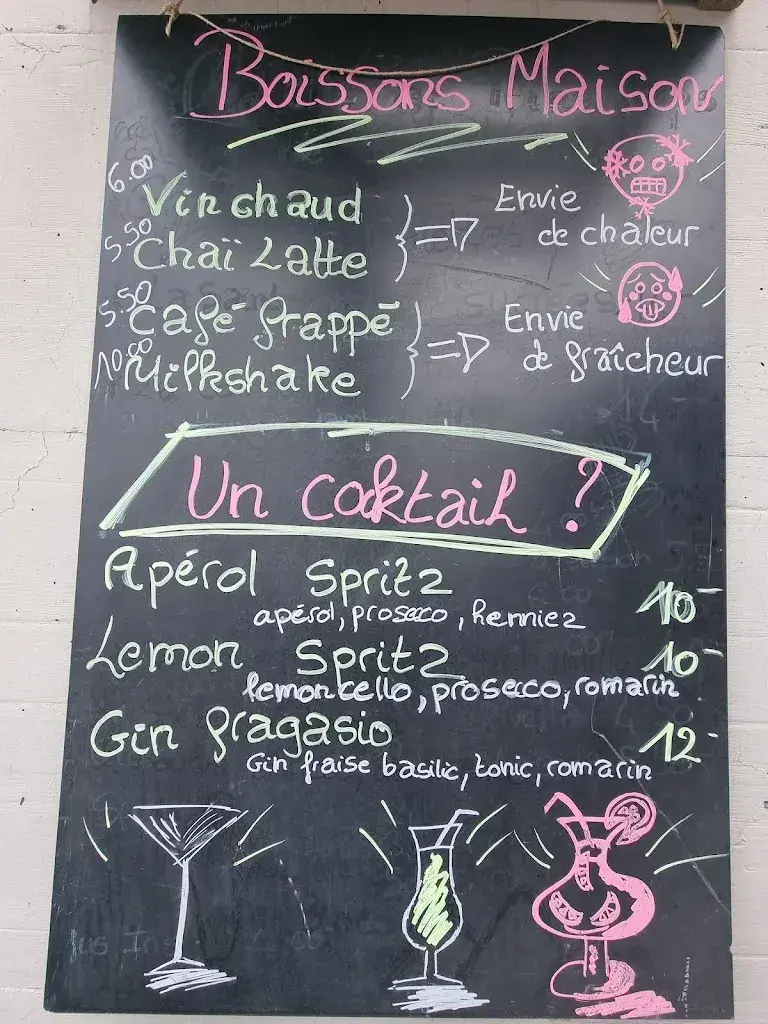 Boissons Maison
6.00 Vin chaud
5.50 Chaï Latte
Envie
de chaleur
5.50 Café frappé
10.00 Milkshake
Envie
de fraîcheur
Un cocktail ?
Apérol Spritz 10-
apérol, prosecco, henniez
Lemon Spritz 10-
lemoncello, prosecco, romarin
Gin fragasio 12-
Gin fraise basilic, tonic, romarin